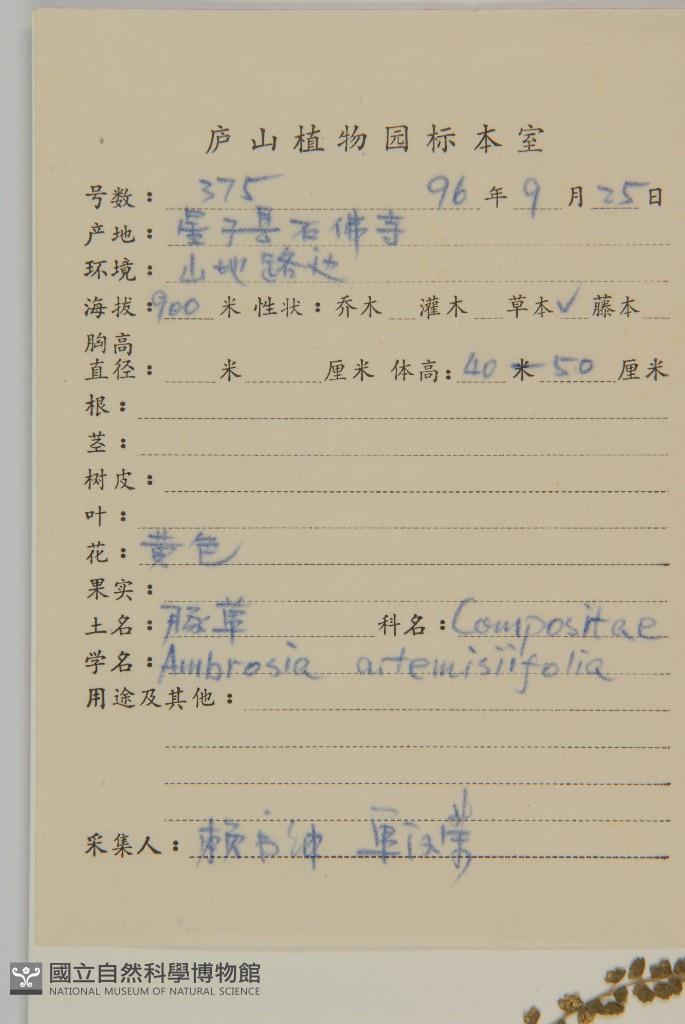 庐山植物园标本室
号数：375 96年9月25日
产地：星子县石佛寺
环境：山地路边
海拔：900米 性状：乔木 灌木 草本✓ 藤本
胸高
直径： 米 厘米 体高：40米—50厘米
根：
茎：
树皮：
叶：
花：黄色
果实：
土名：豚草 科名：Compositae
学名：Ambrosia artemisiifolia
用途及其他：
采集人：赖书绅
國立自然科學博物館
NATIONAL MUSEUM OF NATURAL SCIENCE